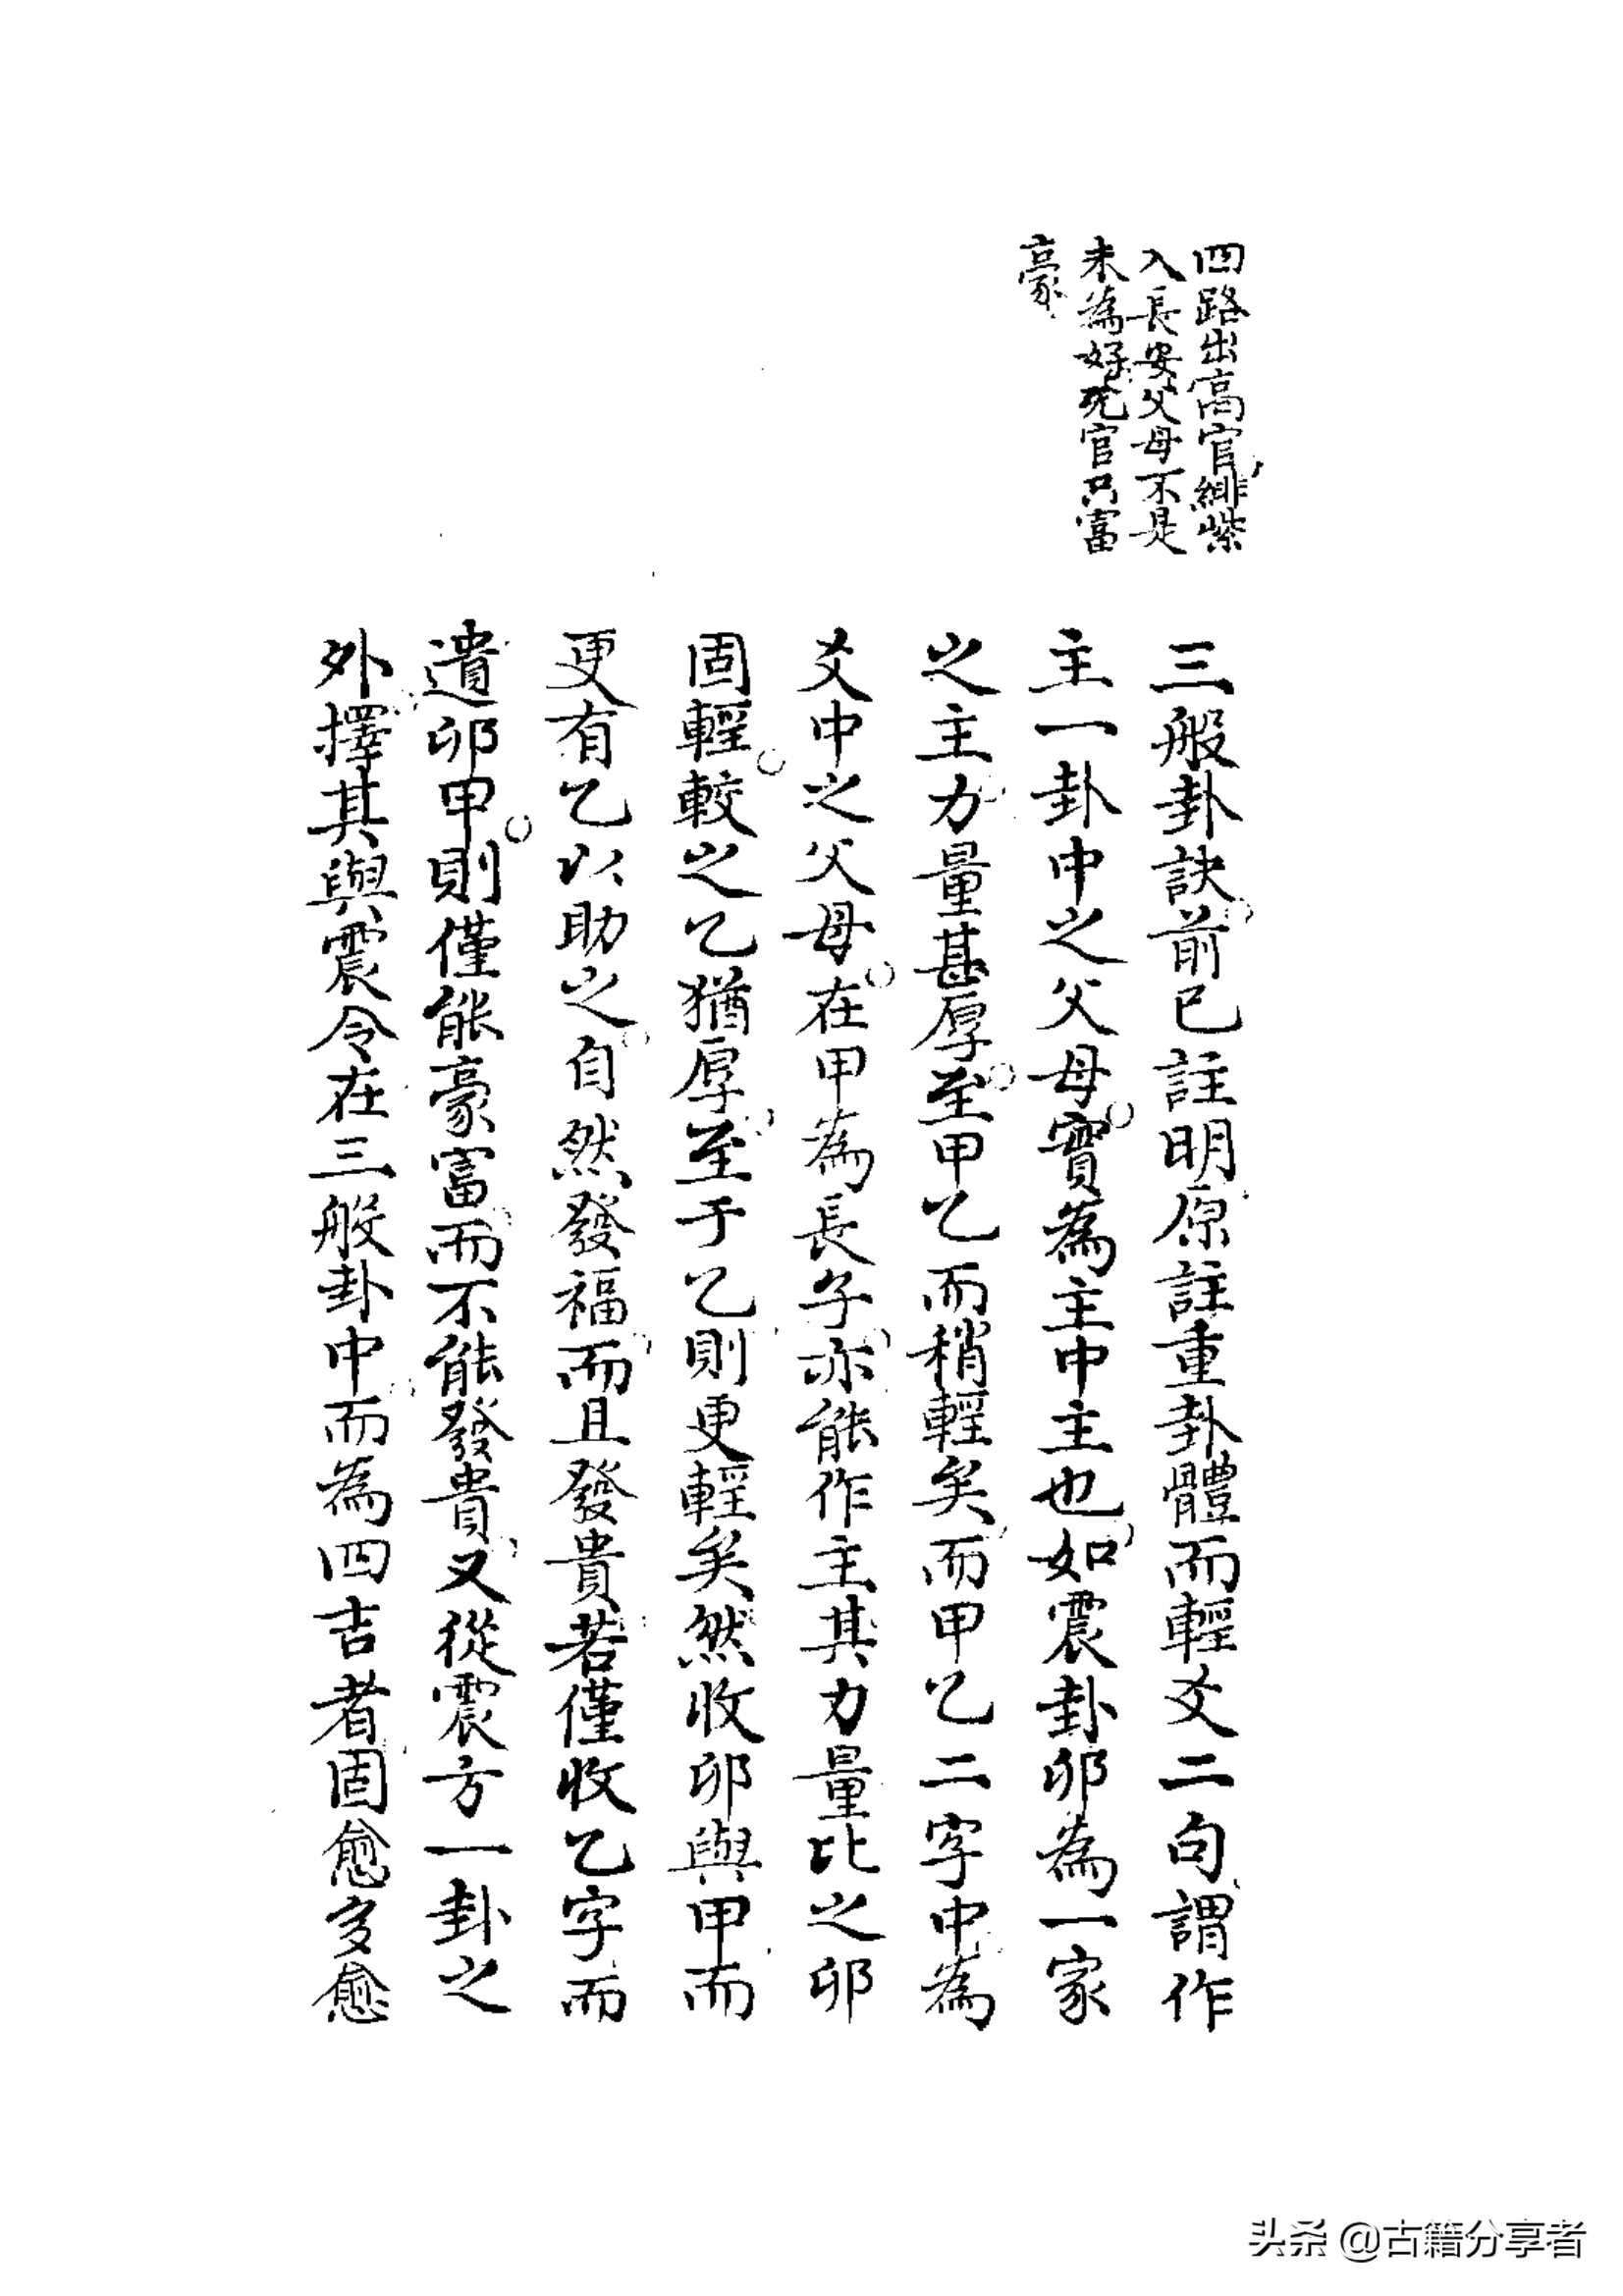 四路出高官緋紫
入長安父母不是
未為好无官只富
豪
三般卦訣前已註明原註重卦體而輕爻二句謂作
主一卦中之父母實為主中主也如震卦卯為一家
之主力量甚厚至甲乙而稍輕矣而甲乙二字中為
爻中之父母在甲為長子亦能作主其力量比之卯
固輕較之乙猶厚至于乙則更輕矣然收卯與甲而
更有乙以助之自然發福而且發貴若僅收乙字而
遺卯甲則僅能豪富而不能發貴又從震方一卦之
外擇其與震令在三般卦中而為四吉者固愈多愈
头条 @古籍分享者